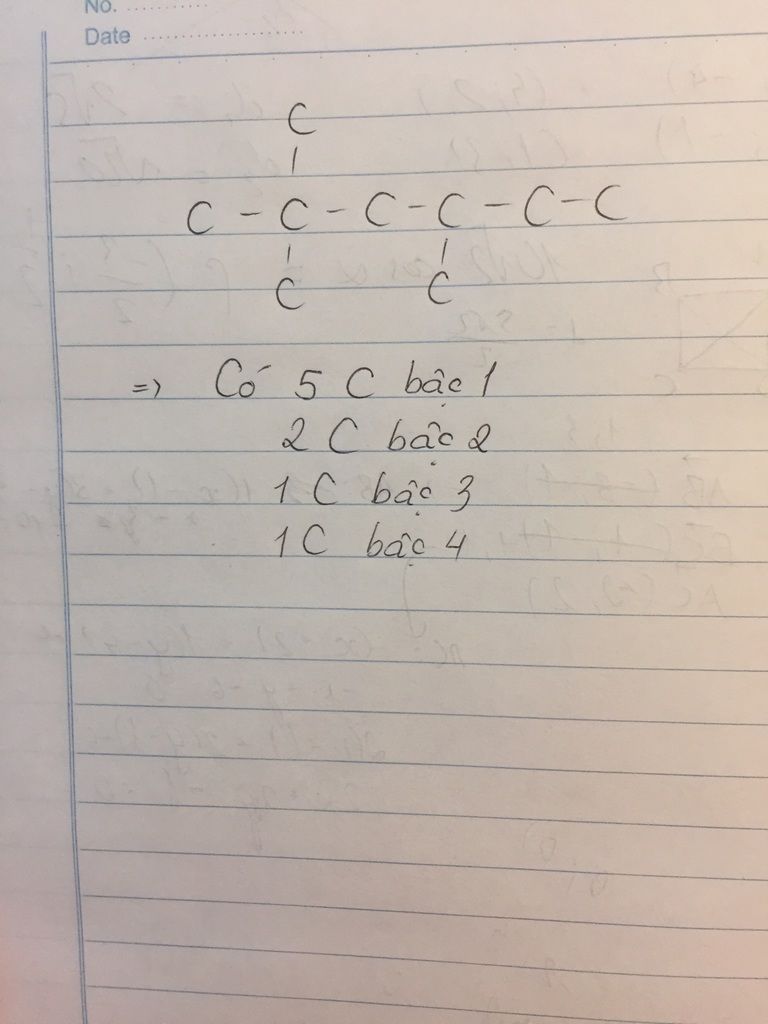 No. ............
Date ........................
C
|
C - C - C - C - C - C
| |
C C
=> Có 5 C bậc 1
2 C bậc 2
1 C bậc 3
1 C bậc 4